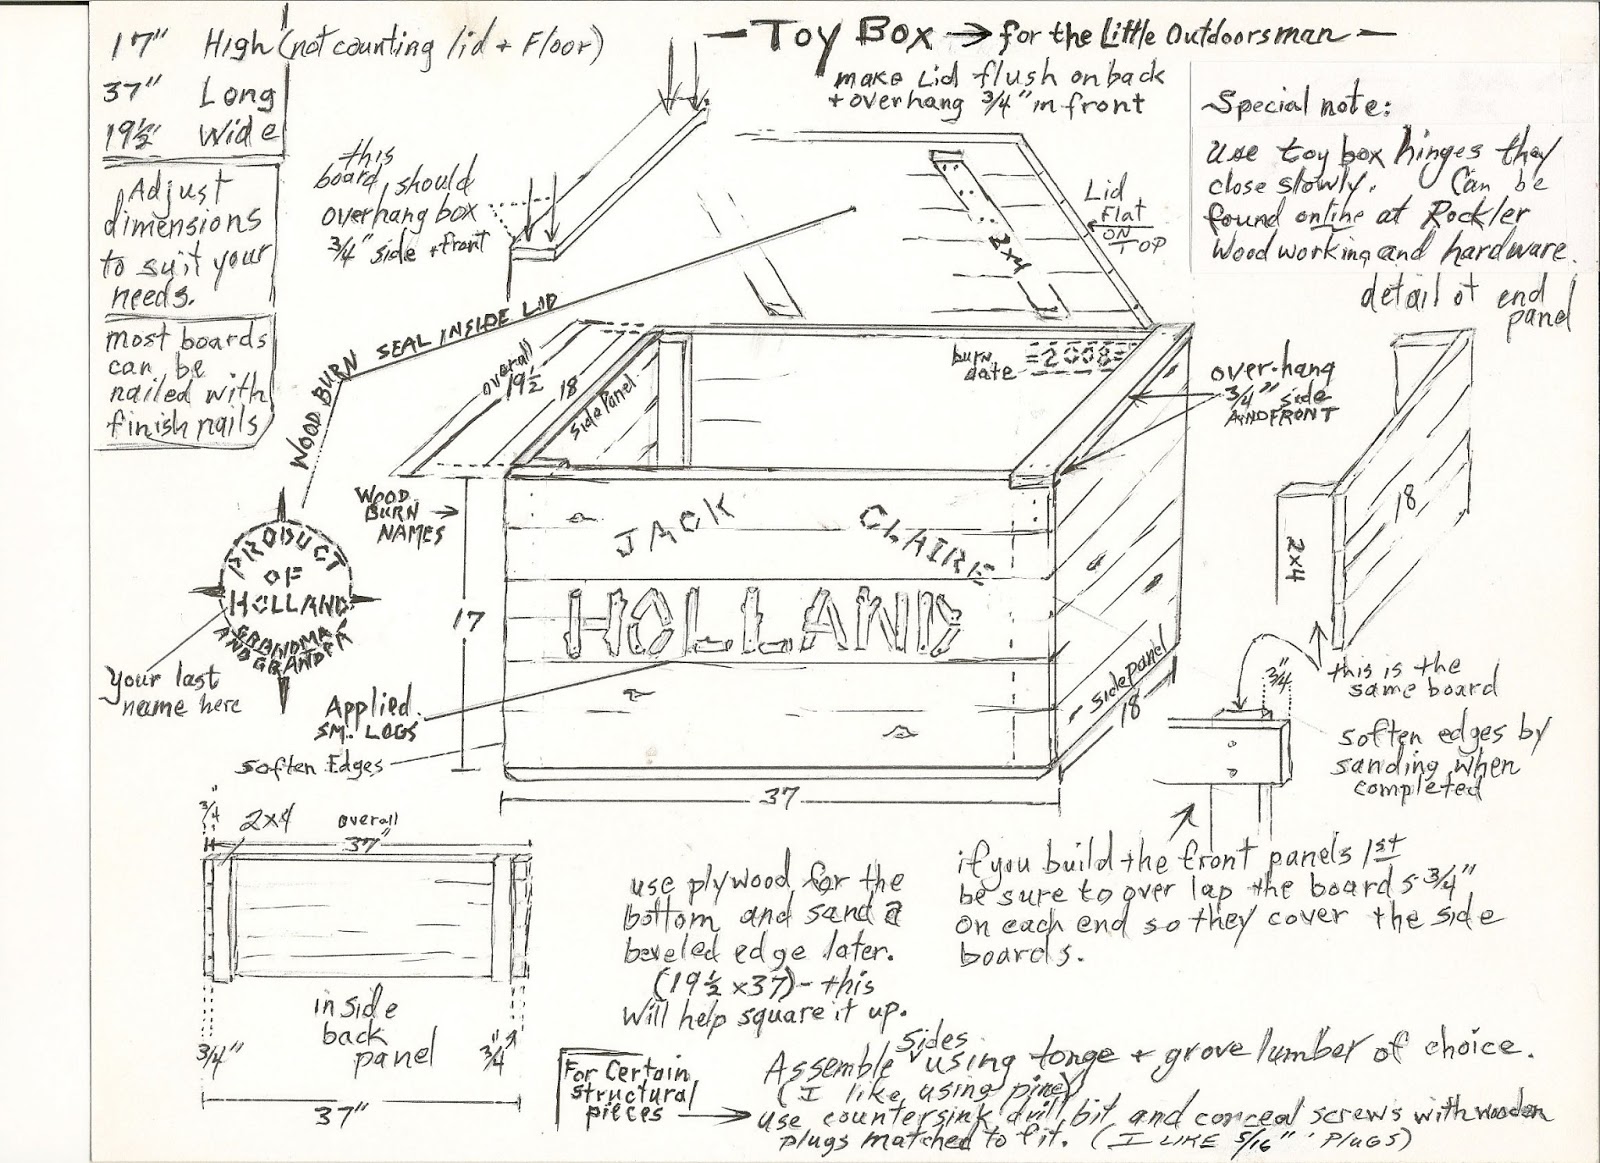 — Toy Box → for the Little Outdoorsman —
17" High (not counting lid + Floor)
37" Long
19½" Wide
Adjust
dimensions
to suit your
needs.
most boards
can be
nailed with
finish nails
make Lid flush on back
+ overhang 3/4" in front
this
board should
overhang box
3/4" side + front
Lid
Flat
ON
TOP
2x4
Special note:
Use toy box hinges they
close slowly. Can be
found online at Rockler
Woodworking and hardware.
detail of end
panel
WOOD BURN SEAL INSIDE LID
overall
19½
18
side Panel
burn
date
=2008=
over-hang
3/4" side
AND FRONT
18
2x4
WOOD
BURN
NAMES
JACK
CLAIRE
HOLLAND
17
PRODUCT
OF
HOLLAND
GRANDMA
AND GRANDPA
Your last
name here
Applied
SM. LOGS
soften Edges
side panel
18
37
3/4"
this is the
same board
soften edges by
sanding when
completed
3/4"
2x4
overall
37"
inside
back
panel
3/4"
3/4"
37"
use plywood for the
bottom and sand a
beveled edge later.
(19½ x 37) - this
will help square it up.
if you build the front panels 1st
be sure to over lap the boards 3/4"
on each end so they cover the side
boards.
Assemble sides using tonge + grove lumber of choice.
(I like using pine)
For Certain
structural
pieces
use countersink drill bit and conceal screws with wooden
plugs matched to fit. (I LIKE 5/16" PLUGS)